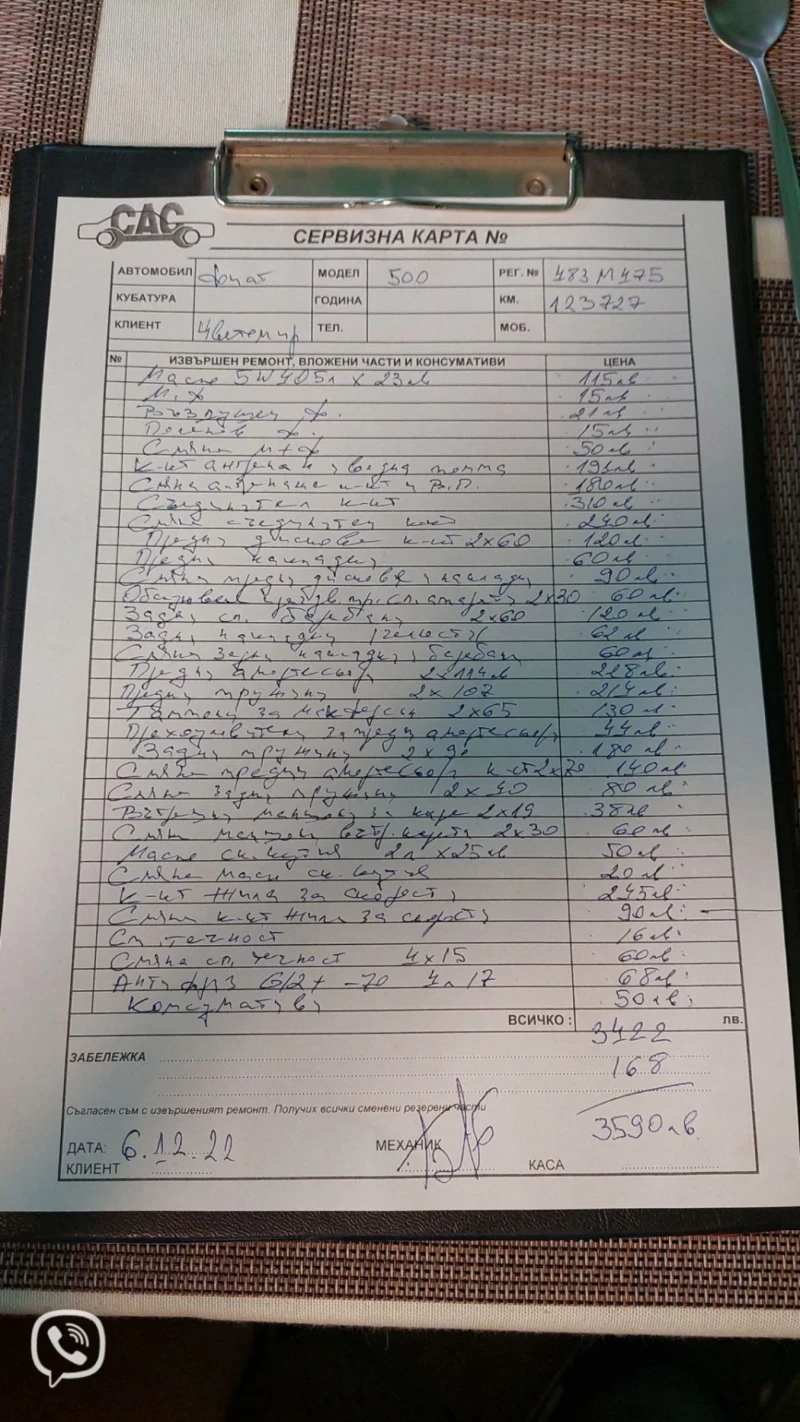 САС
СЕРВИЗНА КАРТА №
АВТОМОБИЛ Фиат МОДЕЛ 500 РЕГ. № 483М475
КУБАТУРА ГОДИНА КМ. 123727
КЛИЕНТ Цветемир ТЕЛ. МОБ.
№ ИЗВЪРШЕН РЕМОНТ, ВЛОЖЕНИ ЧАСТИ И КОНСУМАТИВИ ЦЕНА
Масло 5W40 5л х 23лв 115лв
М.ф 15лв
Въздушен ф. 21лв
ф. 15лв
Смяна м+ф 50лв
К-кт ангренаж и водна помпа
Смяна ангренаж к-кт и В.П. 180лв
Съединител к-кт 310лв
Смяна съединител к-кт 240лв
Предни дискове к-кт 2х60 120лв
Предни накладки 60лв
Смяна предни дискове и накладки 90лв
2х30 60лв
Задни сп. барабани 2х60 120лв
Задни накладки /челюсти/ 62лв
Смяна задни накладки и барабани 60лв
Предни амортисьори 2х114лв 228лв
Предни пружини 2х107 214лв
Тампони за макферсон 2х65 130лв
за предни амортисьори 44лв
Задни пружини 2х90 180лв
Смяна предни амортисьори к-кт 2х70 140лв
Смяна задни пружини 2х40 80лв
Вътрешни маншони за каре 2х19 38лв
Смяна маншони вътр. карета 2х30 60лв
Масло ск. кутия 2л х25лв 50лв
Смяна масло ск. кутия 20лв
К-кт жила за скорости 245лв
Смяна к-кт жила за скорости 90лв
Сп. течност 16лв
Смяна сп. течност 4х15 60лв
Антифриз G12+ -70 4л 17 68лв
Консумативи 50лв
ВСИЧКО : 3422 лв.
ЗАБЕЛЕЖКА 168
Съгласен съм с извършеният ремонт. Получих всички сменени резервни части
3590лв
ДАТА: 6.12.22 МЕХАНИК
КЛИЕНТ КАСА